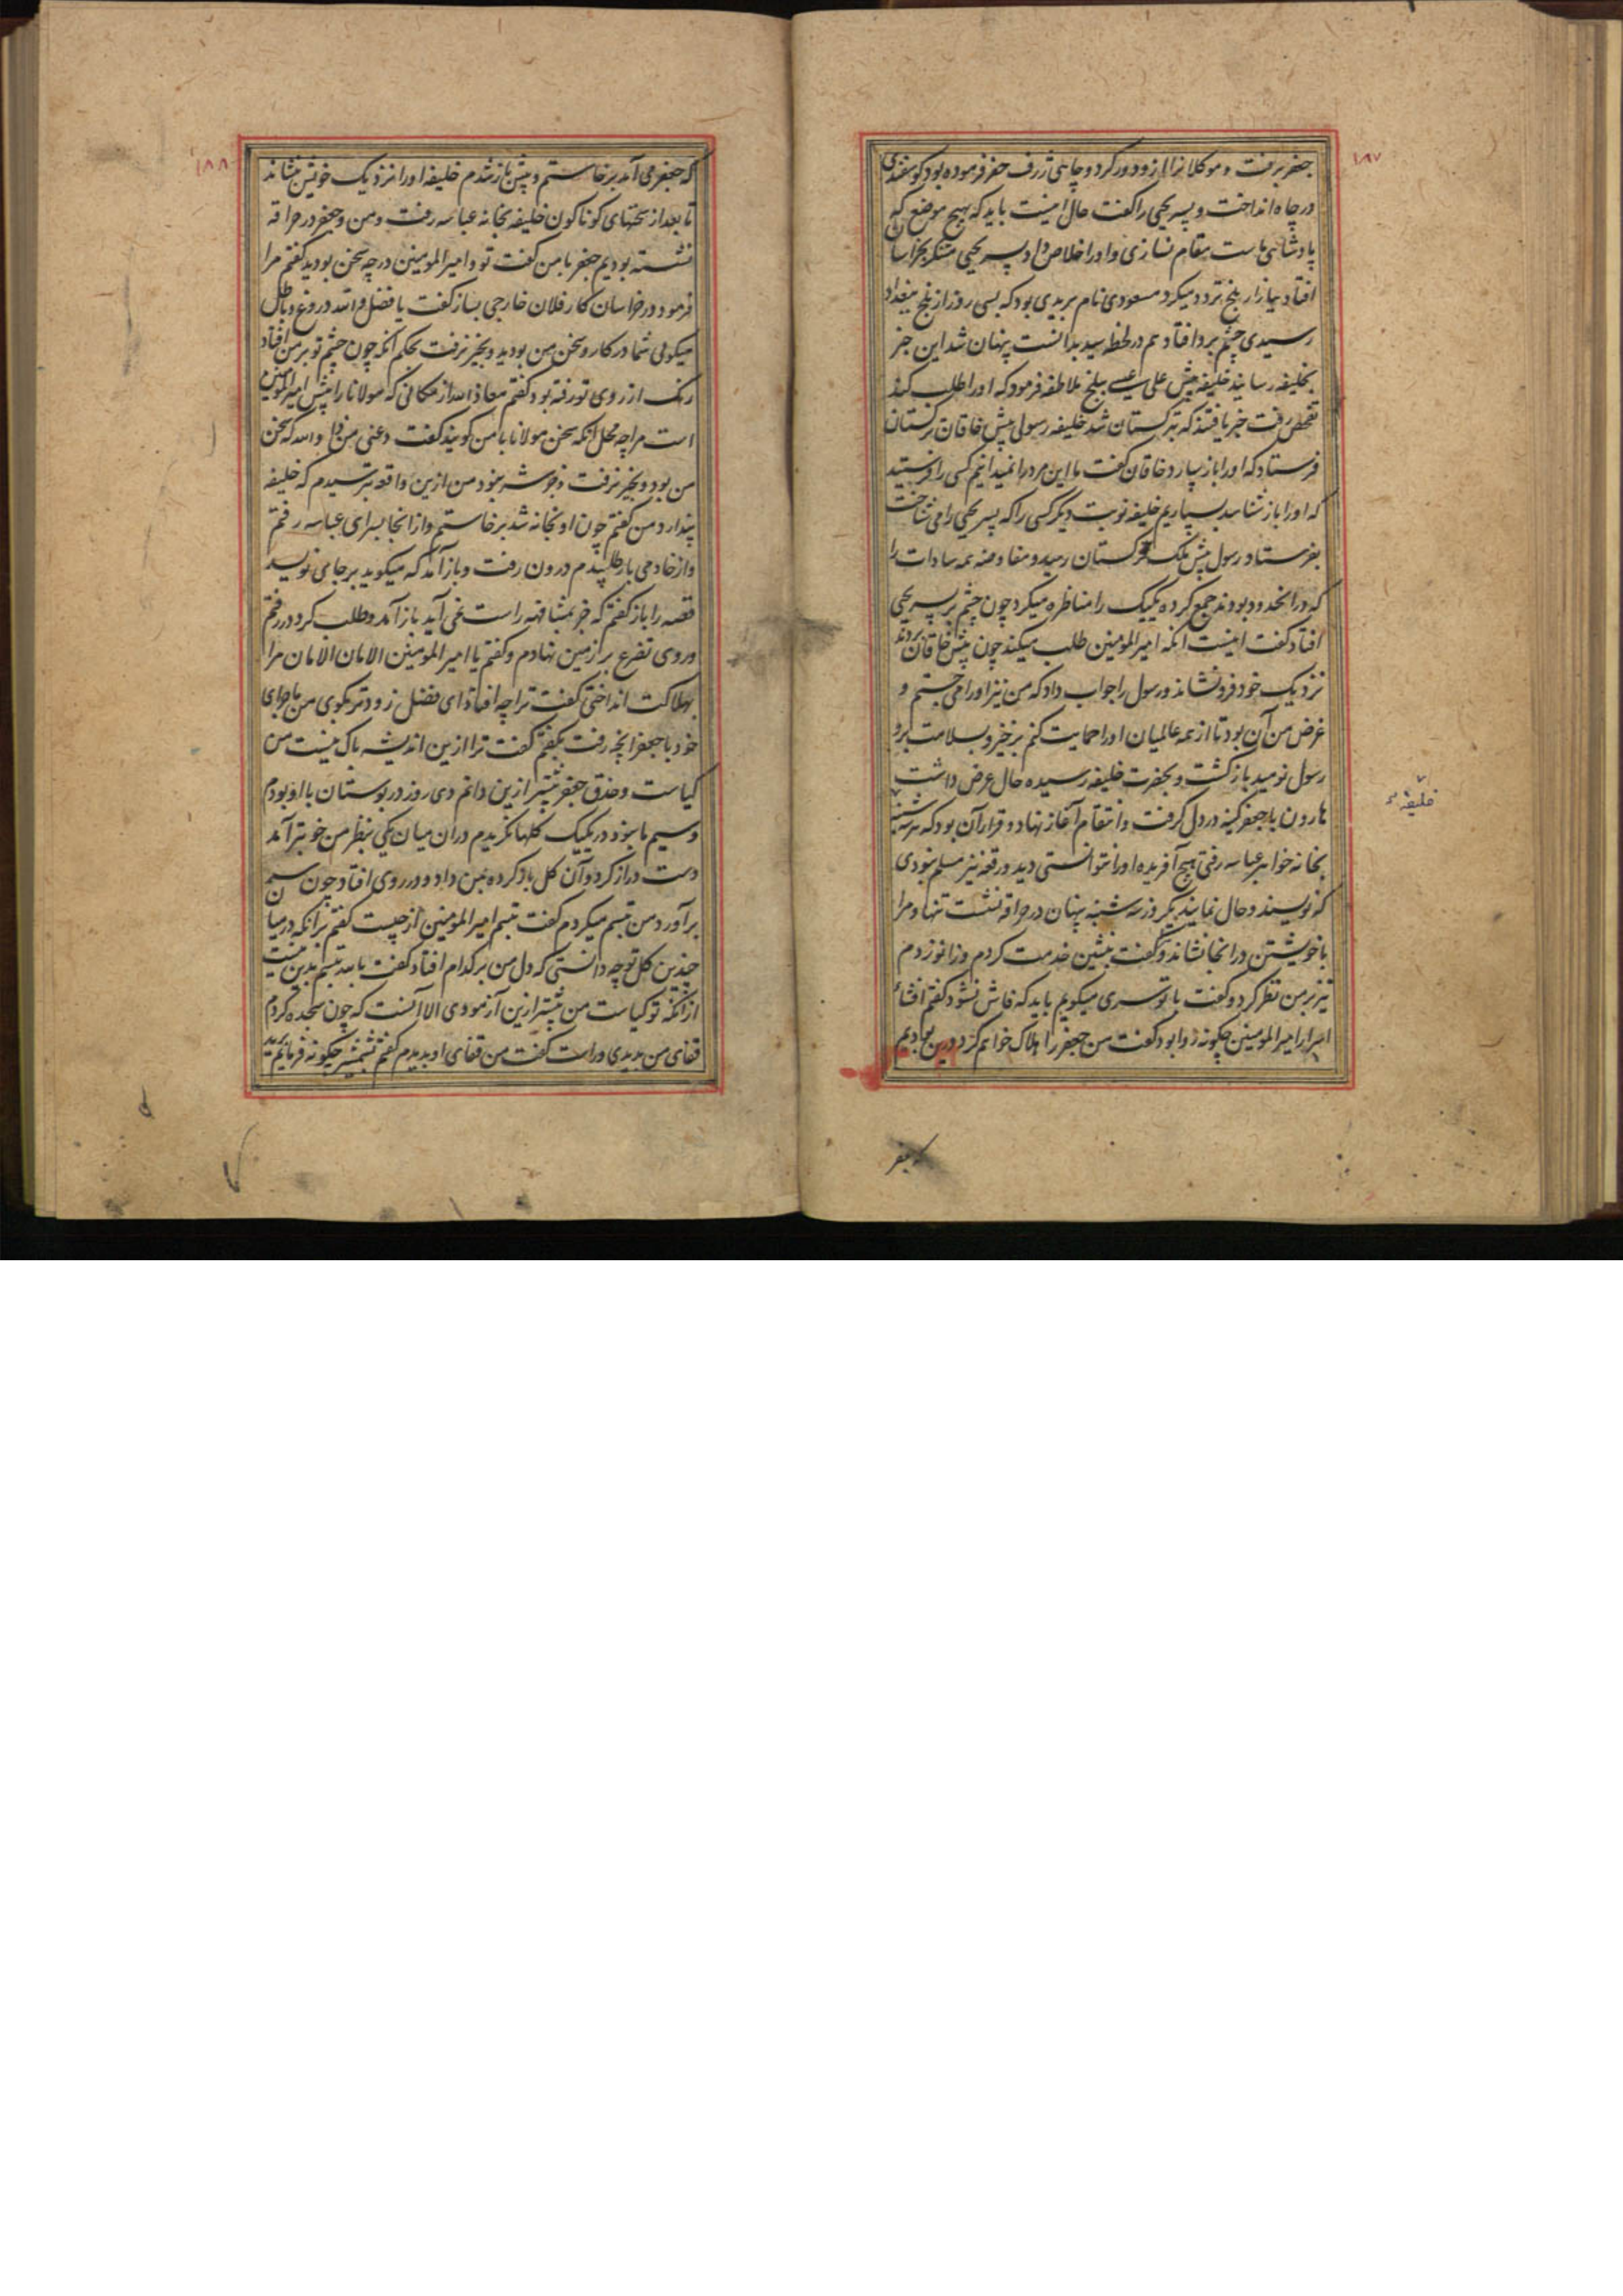 ۱۸۷
جعفر برفت و موکلانرا ازو دور کرد و چاهی ژرف حفر فرموده بود گوسفندی
در چاه انداخت و پسر یحیی را گفت حال اینست باید که بهیچ موضع که
پادشاهی ماست مقام نسازی و او را خلاص داد پسر یحیی متنکر بخراسان
افتاد ببازار بلخ تردد میکرد مسعودی نام بریدی بود که بسی روز از بلخ ببغداد
رسیدی چشم برو افتاد هم در لحظه سید بدانست پنهان شد این خبر
بخلیفه رسانید خلیفه پیش علی عیسی ببلخ ملاطفه فرمود که او را طلب کند
تفحص رفت خبر یافتند که بترکستان شد خلیفه رسولی پیش خاقان ترکستان
فرستاد که او را باز سپارد خاقان گفت ما این مرد را نمیدانیم کسی را فرستید
که او را باز شناسد بسپاریم خلیفه نوبت دیگر کسی را که پسر یحیی را می شناخت
بفرستاد رسول پیش ملک ترکستان رسید و مفاوضه همه سادات را
که در انحدود بودند جمع کرده یکیک را مناظره میکرد چون چشم بر پسر یحیی
افتاد گفت اینست انکه امیرالمومنین طلب میکند چون پیش خاقان بردند
نزدیک خود فرو نشاند و رسول را جواب داد که من نیز او را می جستم و
غرض من آن بود تا از همه عالمیان او را حمایت کنم برخیز و بسلامت برو
رسول نومید بازگشت و بحضرت خلیفه رسیده حال عرض داشت
هارون با جعفر کینه در دل گرفت و انتقام آغاز نهاد و قرار آن بود که هر سه شنبه
بخانه خواهر عباسه رفتی هیچ آفریده او را نتوانستی دید و رقعه نیز مسلم نبودی
که نویسند و حال نمایند یکروز سه شنبه پنهان در حراقه نشست تنها و مرا
با خویشتن در انجا نشاند و گفت بنشین خدمت کردم و زانو زدم
تیز بر من نظر کرد و گفت با تو سری میکویم باید که فاش نشود گفتم افشاء
اسرار امیرالمومنین چگونه روا بود گفت من جعفر را هلاک خواهم کرد درین بودیم
خلیفه
که جعفر
۱۸۸
که جعفر می آمد برخاستم و پیش باز شدم خلیفه او را نزدیک خویش بنشاند
تا بعد از سخنهای گوناگون خلیفه بخانه عباسه رفت و من و جعفر در حراقه
نشسته بودیم جعفر با من گفت تو و امیرالمومنین در چه سخن بودید گفتم مرا
فرمود در خراسان کار فلان خارجی بساز گفت یا فضل والله دروغ و باطل
میگوئی شما در کار و سخن من بودید و بخیر نرفت بحکم آنکه چون چشم تو بر من افتاد
رنگ از روی تو رفته بود گفتم معاذ الله از مکانی که مولانا را پیش امیرالمومنین
است مرا چه محل انکه سخن مولانا با من گویند گفت دعنی من والله که سخن
من بود و بخیر نرفت من ازین واقعه بترسیدم که خلیفه
پندارد من گفتم چون او بخانه شد برخاستم و از انجا بسرای عباسه رفتم
و از خادمی بار طلبیدم درون رفت و باز آمد که میگوید بر جای نویسد
قصه را باز گفتم که جز بمشافهه راست نمی آید باز آمد و طلب کرد در رفتم
و روی تضرع بر زمین نهادم و گفتم یا امیرالمومنین الامان الامان مرا
بهلاکت انداختی گفت ترا چه افتاد ای فضل زودتر بگوی من ماجرای
خود با جعفر انچه رفت بگفتم گفت ترا ازین اندیشه باک نیست من
کیاست و حذق جعفر بیشتر ازین دانم دی روز در بوستان با او بودم
و سیم با بود در یکیک گلها نگریدم دران میان یکی بنظر من خوبتر آمد
دست دراز کرد و آن گل باز کرده بمن داد و در روی افتاد چون سر
برآورد من تبسم میکردم گفت تبسم امیرالمومنین از چیست گفتم برانکه در میان
چندین گل تو چه دانستی که دل من بر کدام افتاد گفت بالله تبسم بدین نیست
ازانکه تو کیاست من بیشتر ازین آزمودی الا آنست که چون سجده کردم
قفای من بدیدی و راست گفت من قفای او بدیدم گفتم بشمشیر چگونه فرمایم